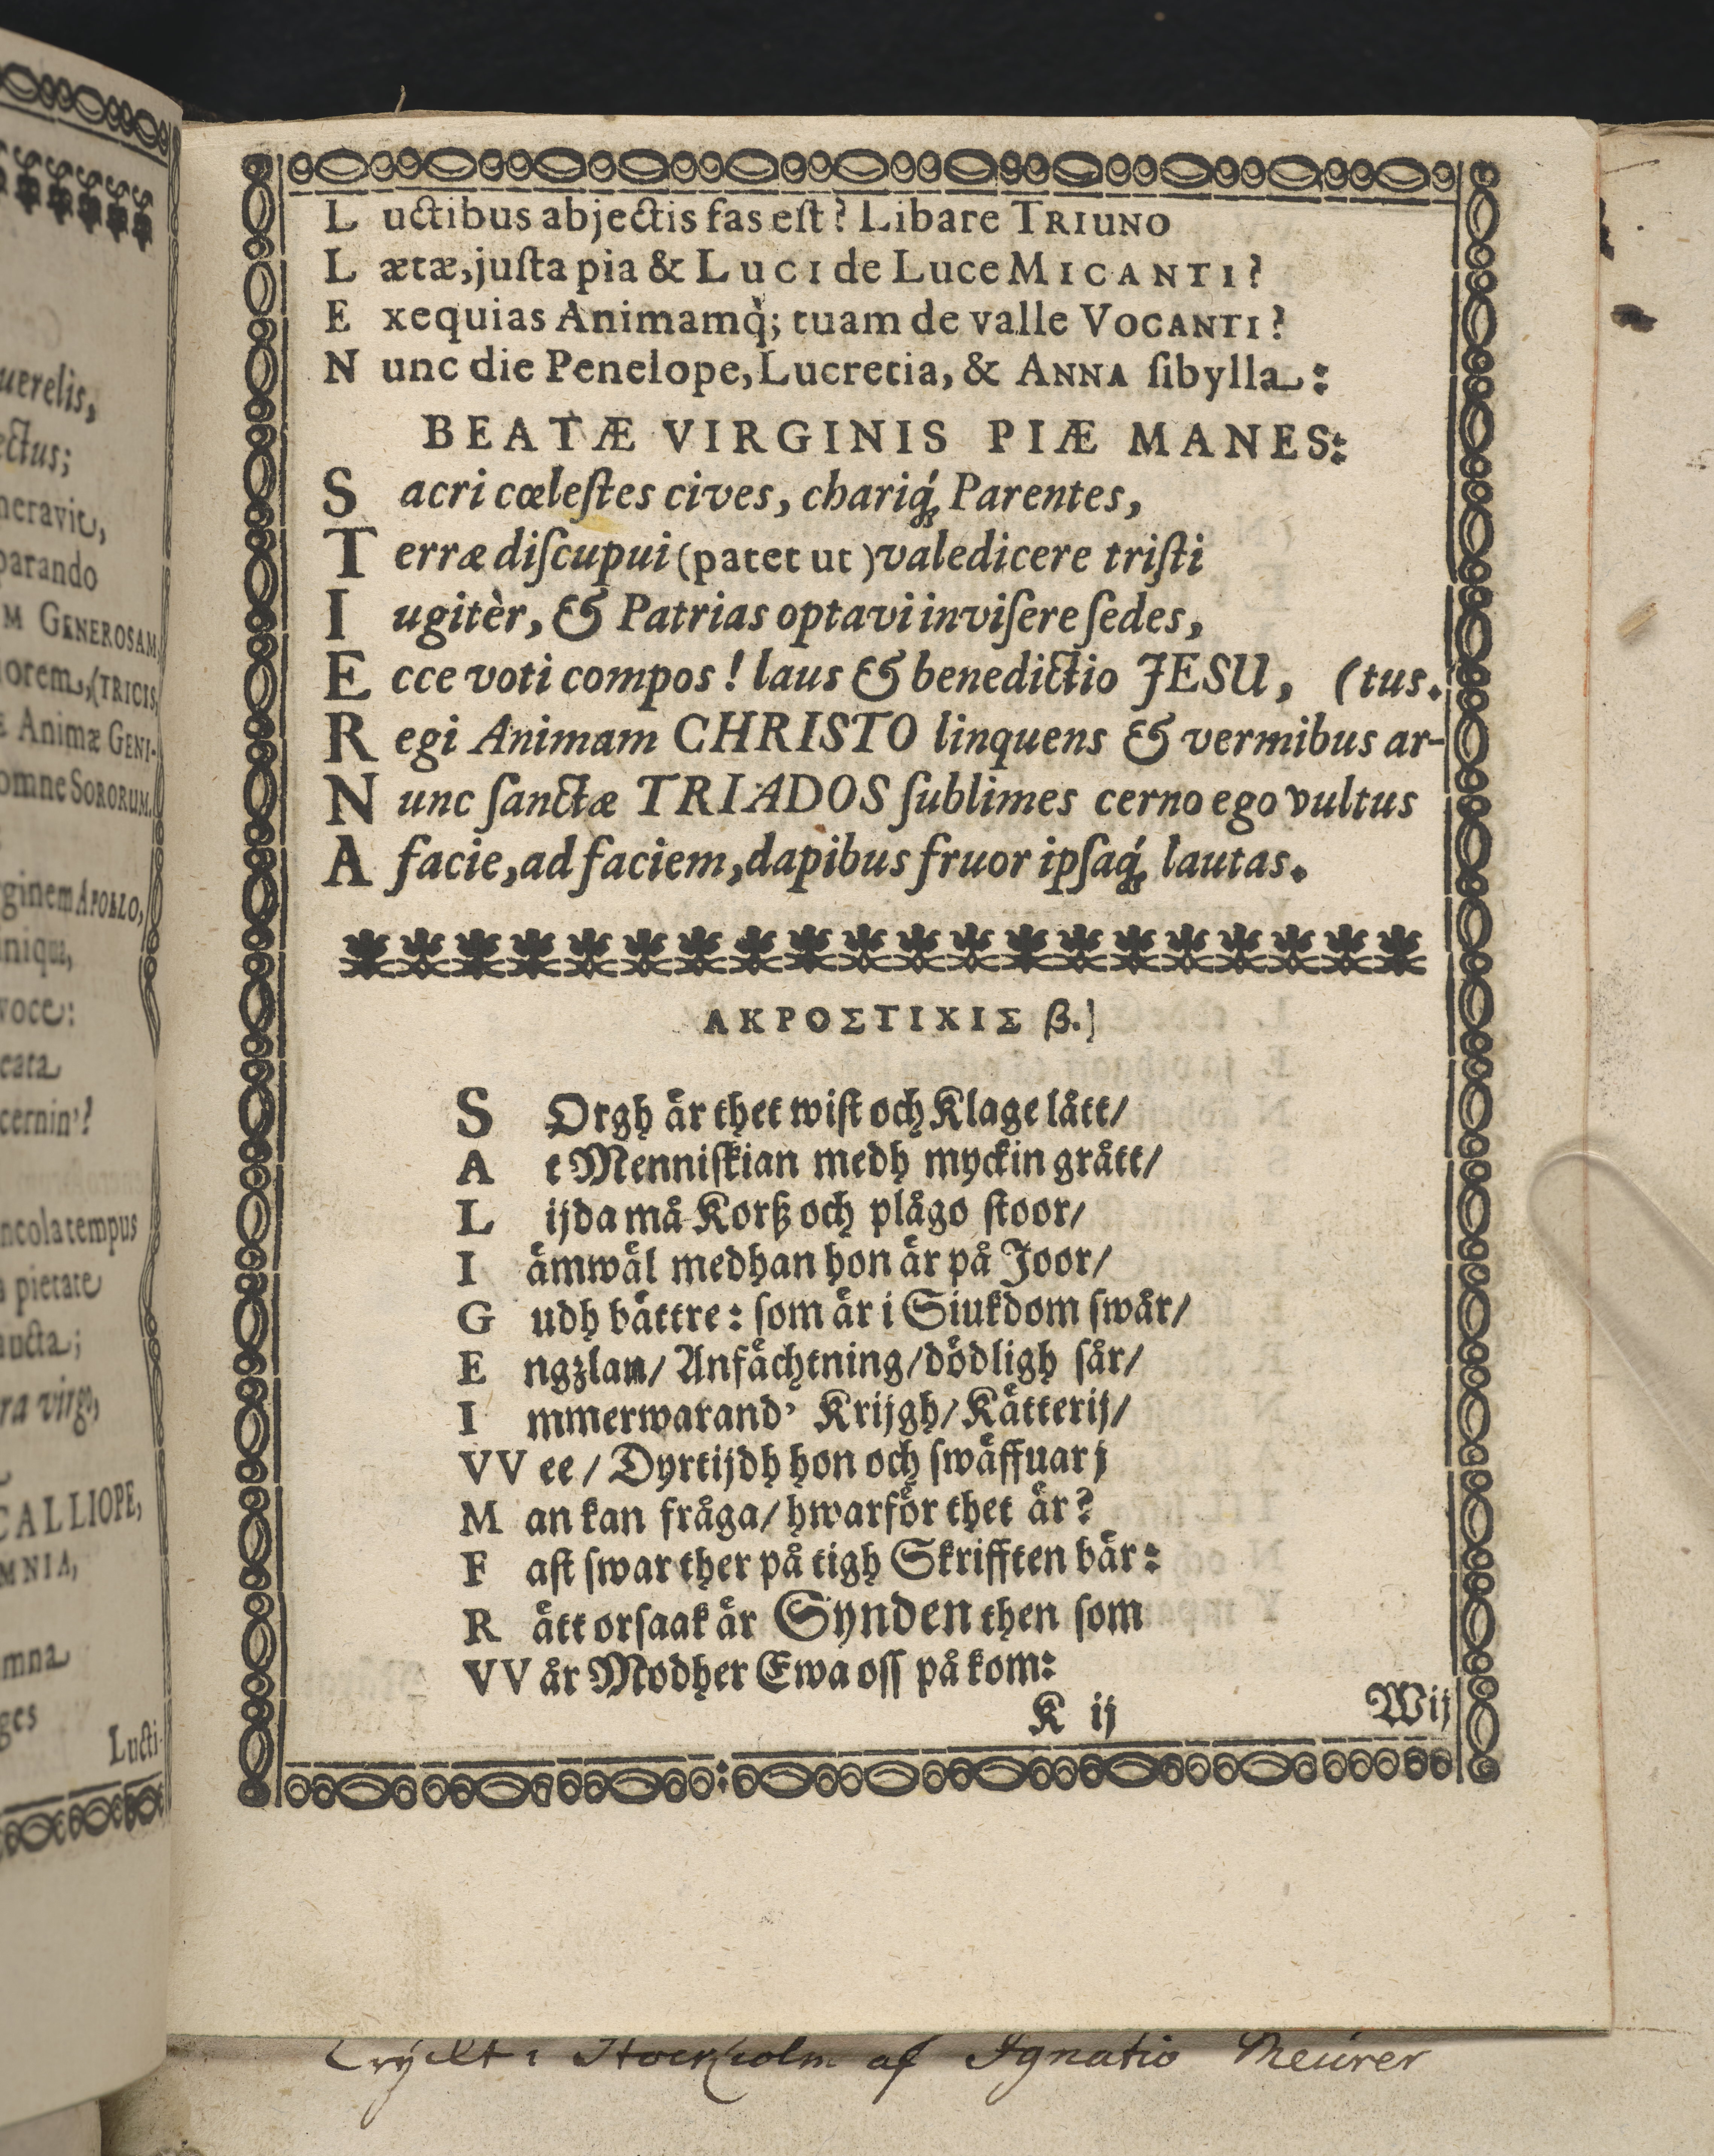 uerelis,
ectus;
neravit,
parando
M GENEROSAM,
iorem,(TRICIS,
æ Animæ GENI-
omne SORORUM.
rginem APOLLO,
iniqua,
voce:
eata
cernin'?
ncola tempus
a pietate
uncta;
ra virgo,
CALLIOPE,
MNIA,
mna
ges
Lucti-
L uctibus abjectis fas eſt? Libare TRIUNO
L ætæ, juſta pia & LUCI de Luce MICANTI?
E xequias Animamq́; tuam de valle VOCANTI?
N unc die Penelope, Lucretia, & ANNA ſibylla:
BEATÆ VIRGINIS PIÆ MANES:
S acri cœleſtes cives, chariq́; Parentes,
T erræ diſcupui (patet ut) valedicere triſti
I ugitèr, & Patrias optavi inviſere ſedes,
E cce voti compos! laus & benedictio JESU, (tus.
R egi Animam CHRISTO linquens & vermibus ar-
N unc ſanctæ TRIADOS ſublimes cerno ego vultus
A facie, ad faciem, dapibus fruor ipſaq́; lautas.
ΑΚΡΟΣΤΙΧΙΣ β.]
S Orgh är thet wiſt och Klage lått/
A t Menniſkian medh myckin grått/
L ijda må Korß och plågo ſtoor/
I ämwäl medhan hon är på Joor/
G udh bättre: ſom är i Siukdom ſwår/
E ngzlan/ Anfächtning/ dödligh ſår/
I mmerwarand' Krijgh/ Kätterij/
VV ee/ Dyrtijdh hon och ſwäffuar j
M an kan fråga/ hwarför thet är?
F aſt ſwar ther på tigh Skrifften bär:
R ätt orſaak är Synden then ſom
VV år Modher Ewa oſſ på kom:
K ij
Wij
Tryckt i Stockholm af Ignatio Meurer